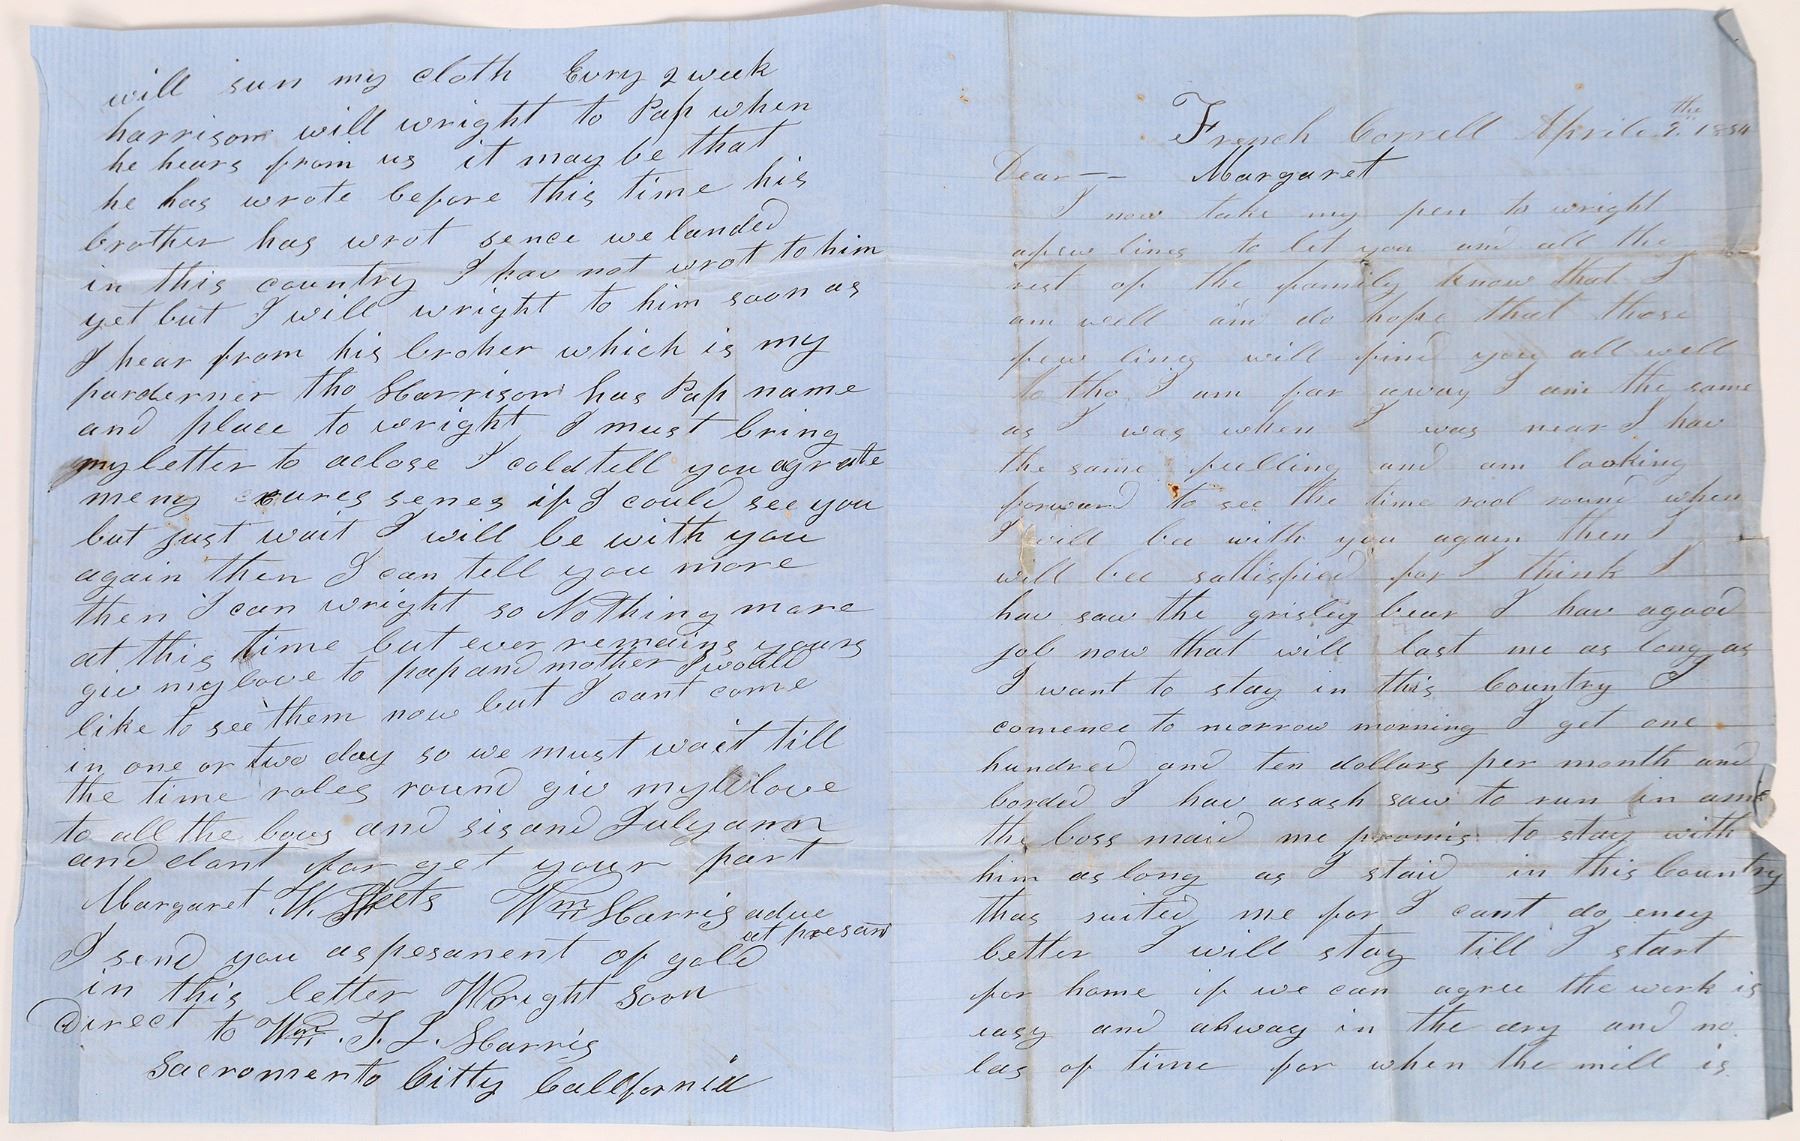 French Correll Aprile 9th 1854
Dear —— Margaret
I now take my pen to wright
afew lines to let you and all the
rest of the family know that I
am well and do hope that those
few lines will find you all well
tho I am far away I am the same
as I was when I was near I hav
the same feelling and am looking
forward to see the time rool round when
I will bee with you again then I
will bee sattisfied for I think I
hav saw the grisley bear I hav agood
job now that will last me as long as
I want to stay in this Country I
comence to morrow morning I get one
hundred and ten dollars per month and
borded I hav asash saw to run in
the boss maid me promis to stay with
him as long as I staid in this Country
thas suited me for I cant do eney
better I will stay till I start
for home if we can agree the work is
easy and alway in the dry and no
las of time for when the mill is
will sun my cloth Evry 2 week
harrison will wright to Pap when
he hears from us it may be that
he has wrote before this time his
brother has wrot sence we landed
in this country I hav not wrot to him
yet but I will wright to him soon as
I hear from his broher which is my
parderner tho Harrison has Pap name
and place to wright I must bring
my letter to aclose I cold tell you agrate
meny senes if I could see you
but just wait I will be with you
again then I can tell you more
then I can wright so Nothing more
at this time but ever remains yours
giv my love to pap and mother I would
like to see them now but I cant come
in one or two day so we must wait till
the time roles round giv my love
to all the boys and sis and Julyann
and dont for get your part
Margaret W. Skeets Wm Harris adue
at presant
I send you aspesanent of gold
in this letter Wright soon
Direct to Wm. T. L. Harris
Sacromento Citty Callfornia